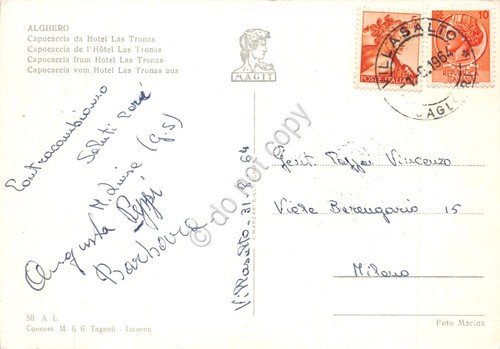 ALGHERO
Capocaccia da Hotel Las Tronas
Capocaccia de l'Hôtel Las Tronas
Capocaccia from Hotel Las Tronas
Capocaccia vom Hotel Las Tronas aus
MAGIT
POSTE ITALIANE
10
VILLASALTO
1964
Contraccambiamo
Saluti cari
M. Luisa (G.S)
Augusta
Barbara
Villasalto - 31.8.64
Gent. Vincenzo
Viale Berengario 15
Milano
do not copy
58 A. L.
Concess. M. & G. Tognoli - Livorno
Foto Macina